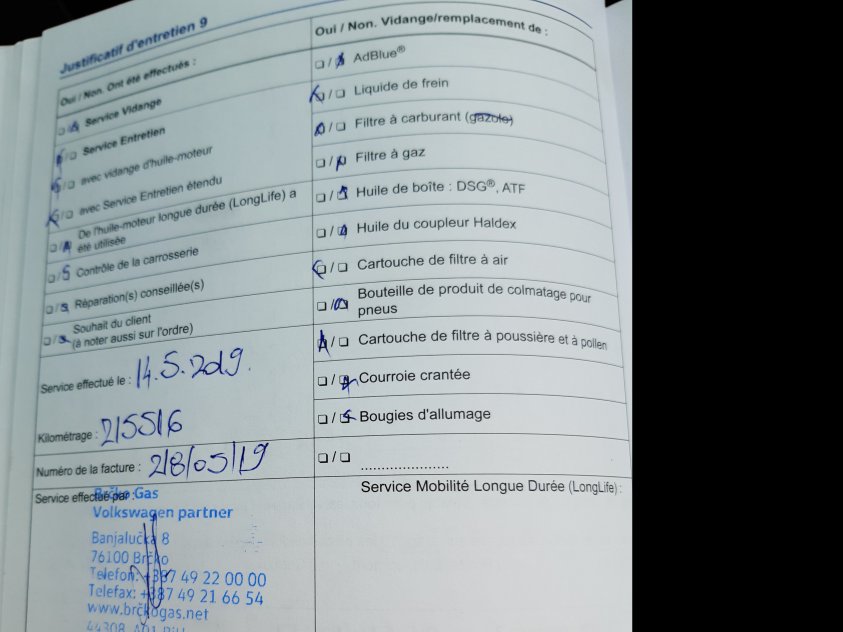 Justificatif d'entretien 9
Oui / Non. Ont été effectués :
Service Vidange
Service Entretien
avec vidange d'huile-moteur
avec Service Entretien étendu
De l'huile-moteur longue durée (LongLife) a
été utilisée
Contrôle de la carrosserie
Réparation(s) conseillée(s)
Souhait du client
(à noter aussi sur l'ordre)
Service effectué le : 14.5.2019.
Kilométrage :
Numéro de la facture :
Service effectué par :
Brčko Gas
Volkswagen partner
Banjalučka 8
76100 Brčko
Telefon: +387 49 22 00 00
Telefax: +387 49 21 66 54
www.brčkogas.net
Oui / Non. Vidange/remplacement de :
AdBlue®
Liquide de frein
Filtre à carburant (gazole)
Filtre à gaz
Huile de boîte : DSG®, ATF
Huile du coupleur Haldex
Cartouche de filtre à air
Bouteille de produit de colmatage pour
pneus
Cartouche de filtre à poussière et à pollen
Courroie crantée
Bougies d'allumage
.....................
Service Mobilité Longue Durée (LongLife) :